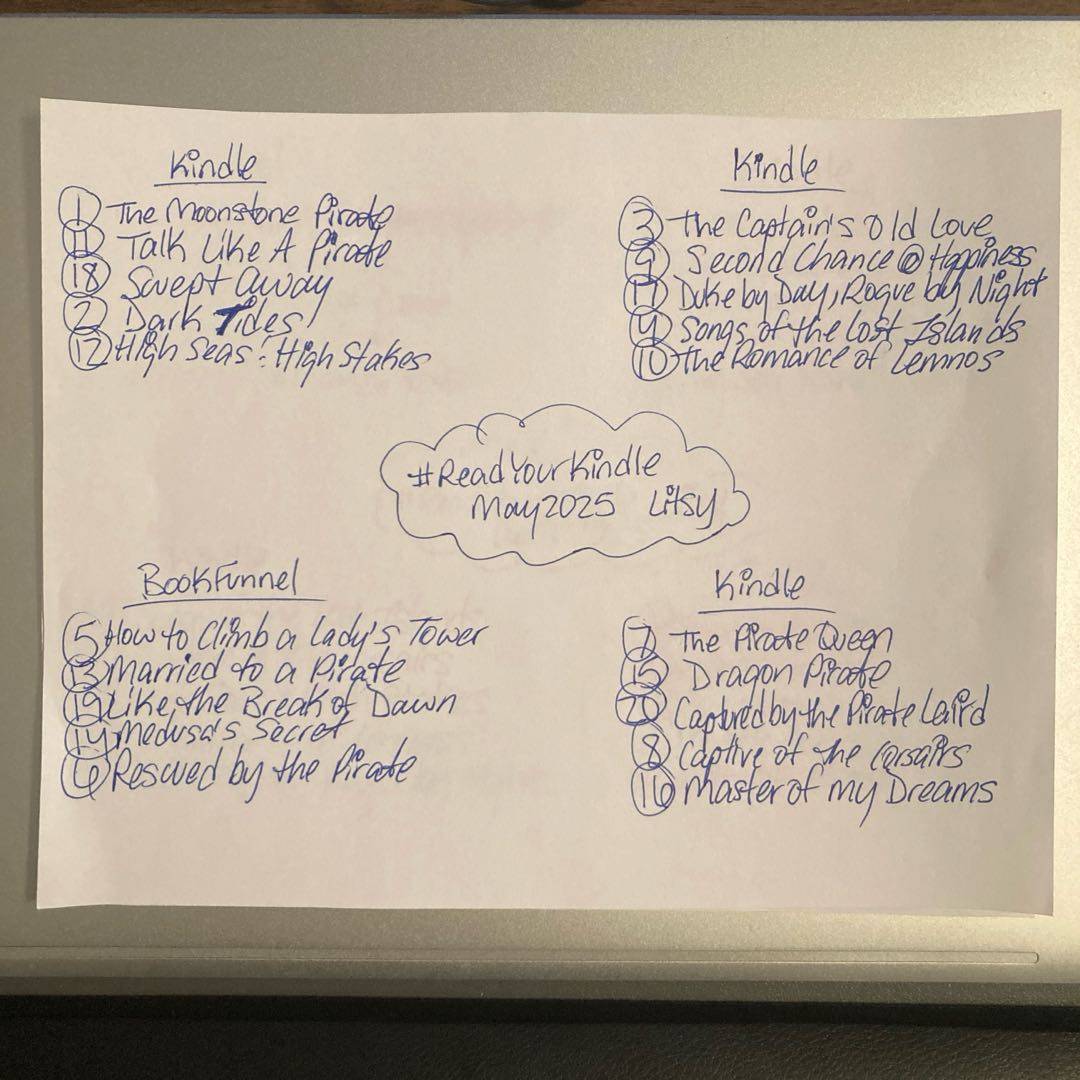 Kindle
1 The Moonstone Pirate
11 Talk Like A Pirate
18 Swept Away
2 Dark Tides
12 High Seas: High Stakes
Kindle
3 The Captain's Old Love
9 Second Chance @ Happiness
17 Duke by Day, Rogue by Night
4 Songs of the Lost Islands
10 The Romance of Lemnos
#ReadYourKindle
May 2025 Litsy
BookFunnel
5 How to Climb a Lady's Tower
13 Married to a Pirate
19 Like the Break of Dawn
14 Medusa's Secret
6 Rescued by the Pirate
Kindle
7 The Pirate Queen
15 Dragon Pirate
20 Captured by the Pirate Laird
8 Captive of the Corsairs
16 Master of my Dreams